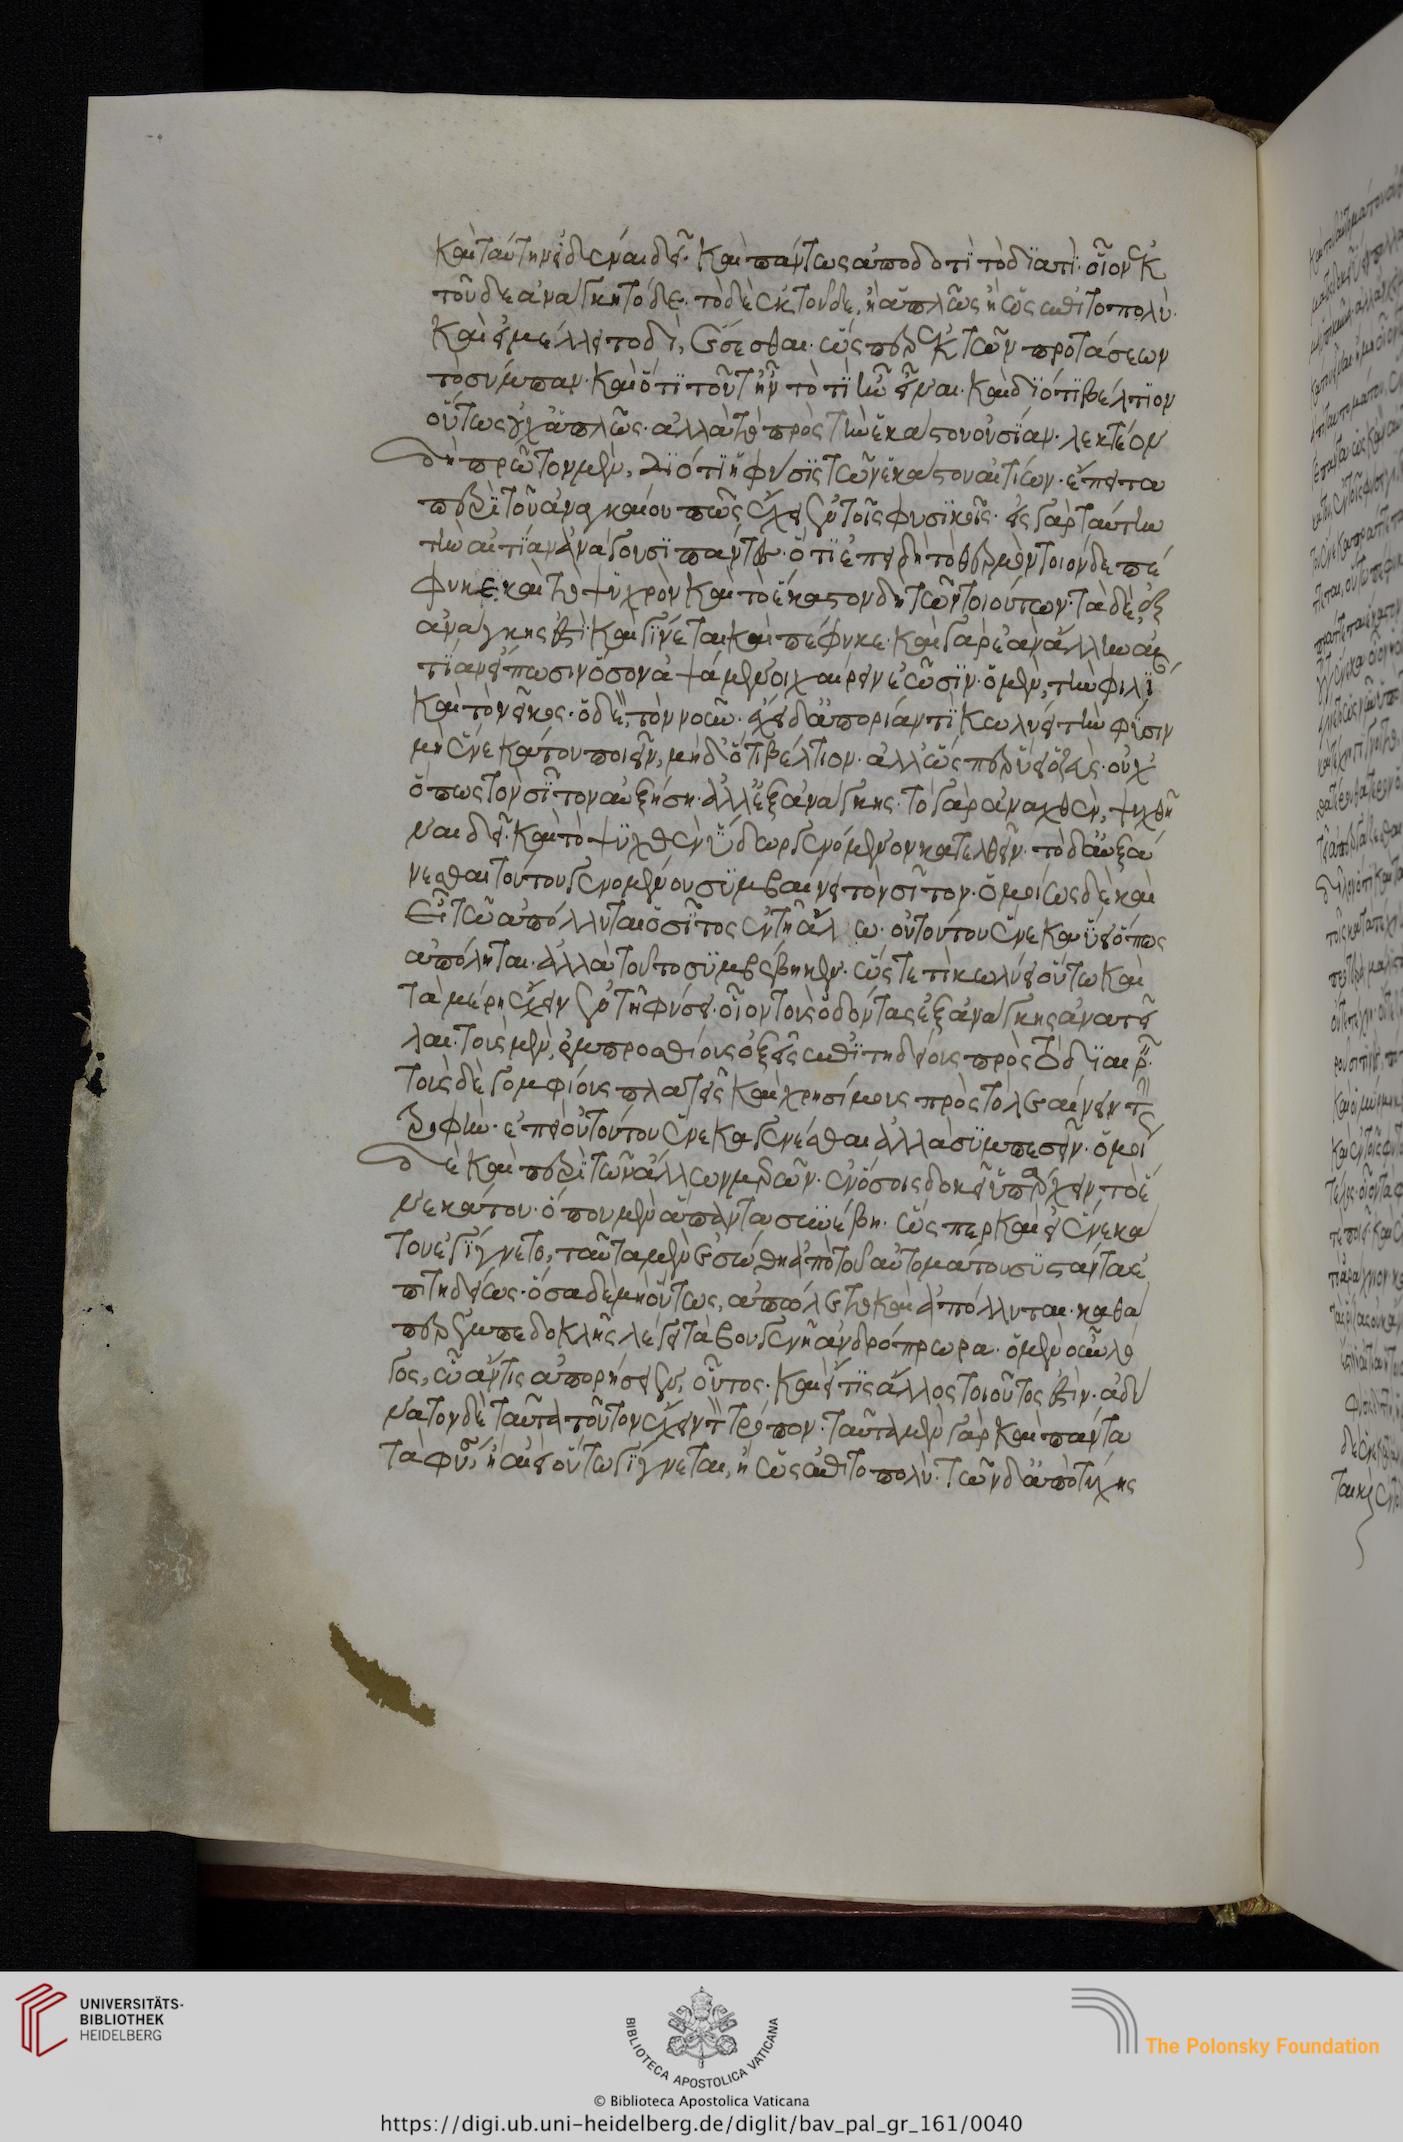 καὶ ταύτην εἰδέναι δεῖ· καὶ πάντως ἀποδοτὲ τὸ διατί· οἷον ἐκ
τοῦδε ἀνάγκη τόδε· τὸ δὲ ἐκ τοῦδε, ἢ ἁπλῶς ἢ ὡς ἐπὶ τὸ πολύ·
καὶ εἰ μέλλει τοδὶ, ἔσεσθαι· ὥσπερ ἐκ τῶν προτάσεων
τὸ συμπαν· καὶ ὅτι τοῦτ ἦν τὸ τί ἦν εἶναι· καὶ διότι βέλτιον
οὕτως οὐχ ἁπλῶς· ἀλλὰ τὸ πρὸς τὴν ἑκάστου οὐσίαν· λεκτέον
δὴ πρῶτον μὲν, διότι ἡ φύσις τῶν ἕνεκά του αἰτίων· ἔπειτα
περὶ τοῦ ἀναγκαίου πῶς ἔχει ἐν τοῖς φυσικοῖς· εἰς γὰρ ταύτην
τὴν αἰτίαν ἀνάγουσι πάντες· ὅτι ἐπειδὴ τὸ θερμὸν τοιόνδε πέ
φυκε καὶ τὸ ψυχρὸν καὶ τὸ ἕκαστον δὴ τῶν τοιούτων· τὰ δὲ, ἐξ
ἀνάγκης ἐστὶ καὶ γίνεται καὶ πέφυκε· καὶ γὰρ ἐὰν ἄλλην αἰ
τίαν εἴπωσιν ὅσον ἁψάμενοι χαίρειν ἐῶσιν· ὁ μὲν, τὴν φιλί
καὶ τὸν νεῖκος· ὁ δὲ, τὸν νοῦν· ἔχει δ ἀπορίαν τί κωλύει τὴν φύσιν
μὴ ἕνεκά του ποιεῖν, μηδ ὅτι βέλτιον· ἀλλ ὥσπερ ὕει ὁ ζεὺς· οὐχ
ὅπως τὸν σῖτον αὐξήσῃ· ἀλλ ἐξ ἀνάγκης· τὸ γὰρ ἀναχθὲν, ψυχθῆ
ναι δεῖ· καὶ τὸ ψυχθὲν ὕδωρ γενόμενον κατελθεῖν· τὸ δ αὐξά
νεσθαι τούτου γενομένου συμβαίνει τὸν σῖτον· ὁμοίως δὲ καὶ
εἴ τῳ ἀπόλλυται ὁ σῖτος ἐν τῇ ἅλῳ· οὐ τούτου ἕνεκα ὕει ὅπως
ἀπόληται· ἀλλὰ τοῦτο συμβέβηκεν· ὥστε τί κωλύει οὕτω καὶ
τὰ μέρη ἔχειν ἐν τῇ φύσει· οἷον τοὺς ὀδόντας ἐξ ἀνάγκης ἀνατεῖ
λαι· τοὺς μὲν, ἐμπροσθίους ὀξεῖς ἐπιτηδείους πρὸς τὸ διαιρ
τοὺς δὲ γομφίους πλατεῖς καὶ χρησίμους πρὸς τὸ λεαίνειν τ
τροφήν· ἐπεὶ οὐ τούτου ἕνεκα γενέσθαι ἀλλὰ συμπεσεῖν· ὁμοί
δὲ καὶ περὶ τῶν ἄλλων μερῶν· ἐν ὅσοις δοκεῖ ὑπάρχειν, τὸ ἕ
νεκά του· ὅπου μὲν ἅπαντα συνέβη· ὥσπερ καὶ εἰ ἕνεκά
του ἐγίγνετο, ταῦτα μὲν ἐσώθη ἀπὸ τοῦ αὐτομάτου συστάντα ἐ
πιτηδείως· ὅσα δὲ μὴ οὕτως, ἀπώλετο καὶ ἀπόλλυται· καθά
περ ἐμπεδοκλῆς λέγει τὰ βουγενῆ ἀνδρόπρωρα· ὁ μὲν οὖν λό
γος, ᾧ ἄν τις ἀπορήσειεν, οὗτος· καὶ εἴ τις ἄλλος τοιοῦτος ἐστίν· ἀδύ
νατον δὲ ταῦτα τοῦτον ἔχειν τ τρόπον· ταῦτα μὲν γὰρ καὶ πάντα
τὰ φύσει, ἢ ἀεὶ οὕτω γίγνεται, ἢ ὡς ἐπὶ τὸ πολύ· τῶν δ ἀπὸ τύχης
UNIVERSITÄTS-
BIBLIOTHEK
HEIDELBERG
BIBLIOTECA APOSTOLICA VATICANA
The Polonsky Foundation
© Biblioteca Apostolica Vaticana
https://digi.ub.uni-heidelberg.de/diglit/bav_pal_gr_161/0040